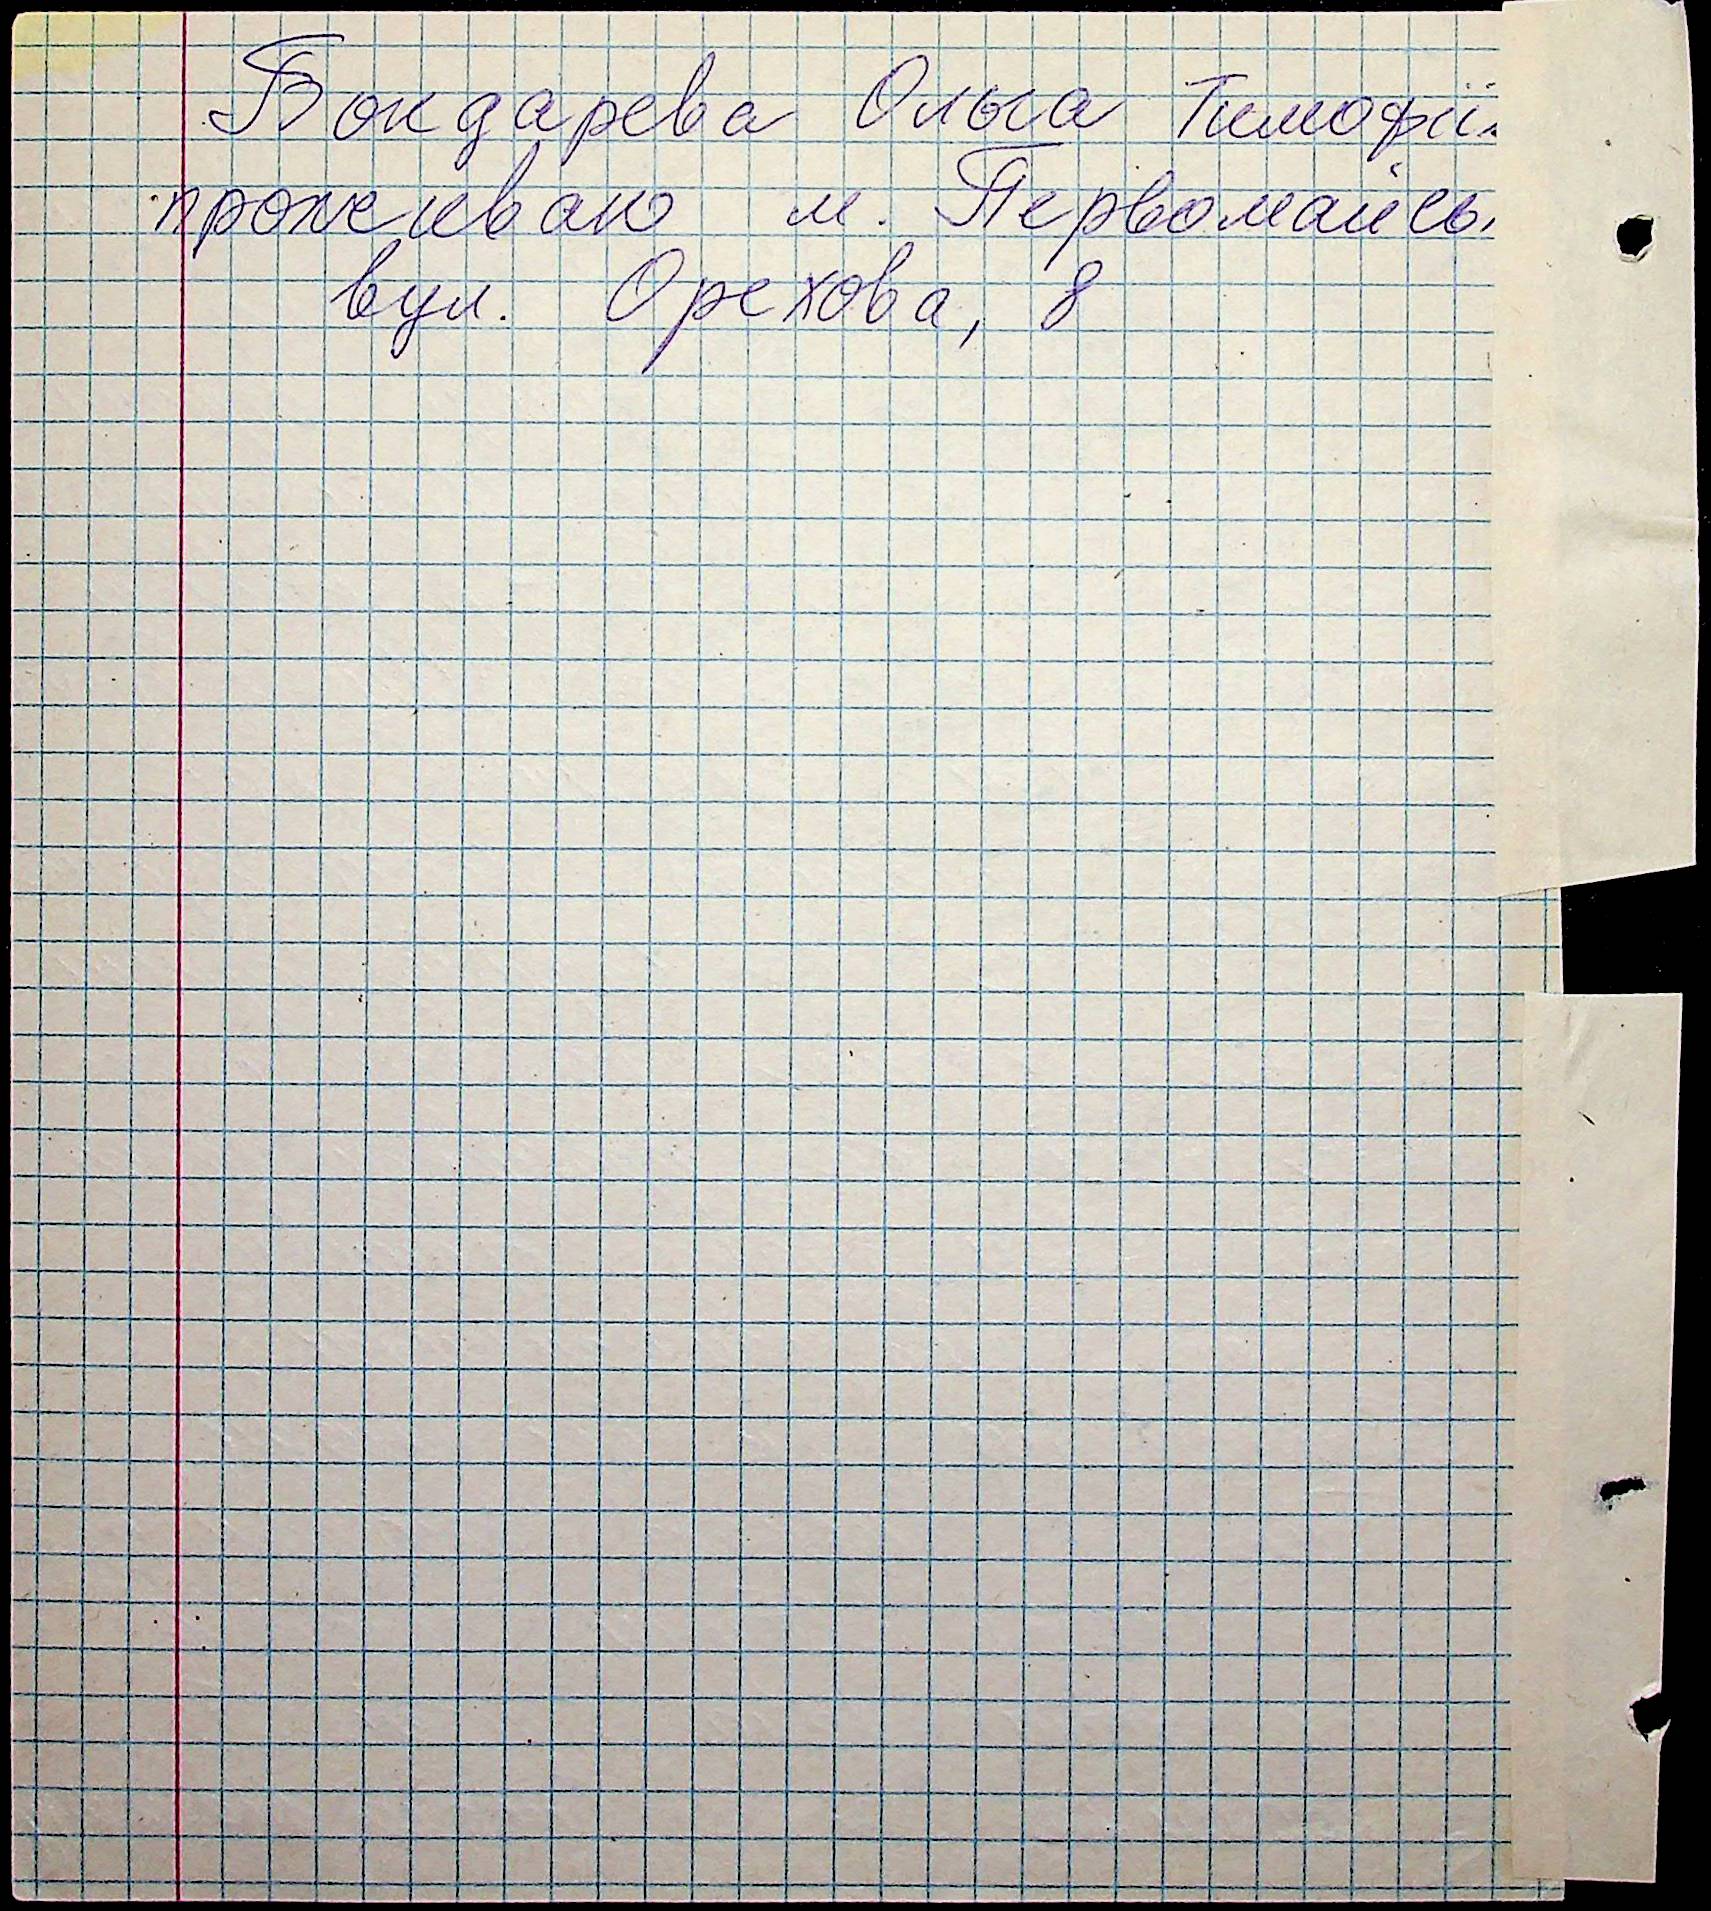 Бондарева Ольга Тимофії
проживаю м. Первомайсь
вул. Орехова, 8